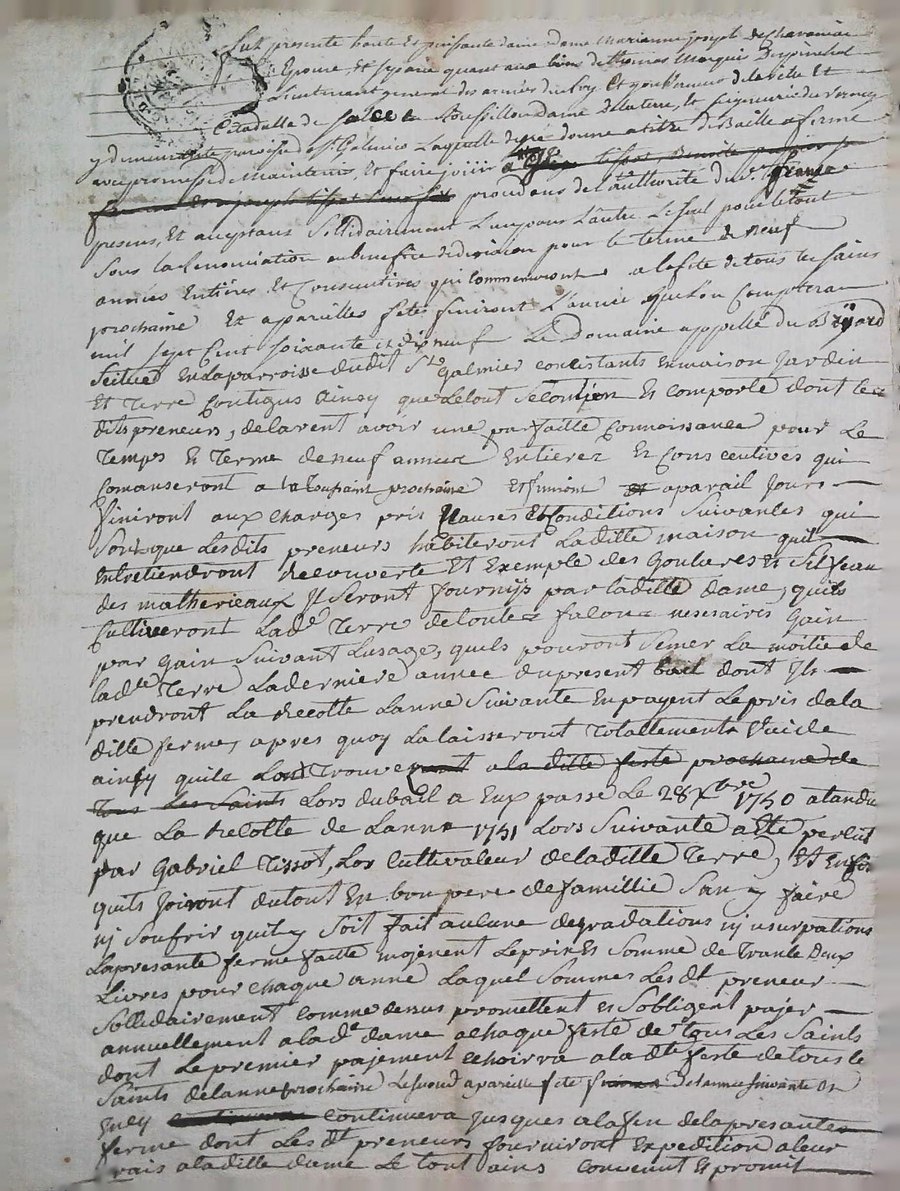 fut presente haute Et puissante dame dame marianne joseph de
Epouse, Et separée quant aux biens de thomas Marquis Despinchal
Lieutenant general des armées du Roy, Et gouverneur de la ville Et
Citadelle de Roussillon Dame de la terre, Et seigneurie du
y demeurante paroisse de St Galmier Laquelle de gré donne a titre de Baille a ferme
avec promesse de Maintenir, Et faire jouir a
procedans de l'authorité du
presens, Et acceptans Sollidairement L'un pour L'autre Le seul pour le tout
Sous la Renonciation au benefice de division pour le terme de neuf
années Entières Et Consecutives qui commenceront a la fete de tous les saints
prochaine Et a pareilles fetes finiront L'année que L'on Comptera
mil sept Cent soixante et dix neuf Le Domaine appellé du
Scitué En la parroisse dudit St Galmier concistants En maison Jardin
Et Terre Contigus Ainsy que Letout Se Et comporte dont les
dits preneurs, declarent avoir une parfaitte Connoissance pour Le
Temps Et Terme de neuf années Entierez Et Consecutives qui
Comanseront a la Toussaint prochaine Et finiront a parail Jours
finiront aux charges pris Clauses Et Conditions Suivantes qui
Sont que Lesdits preneurs habiteront Ladille maison quil
Entretiendront Recouverte Et Exemple des Goutieres Et Silfeau
des matherieaux Jl Seront fournijs par ladille dame, quils
Cultiveront Lade Terre de toutes falons nesesaires Gain
par Gain Suivant Lusage, quils pouront Semer La moitie de
ladte Terre Laderniere annee du present bail dont Jls
prendront La Recolte Lanne Suivante En payent Le pris de la
dille ferme, apres quoy La laisseront Totallements Vuide
ainsy quils Lont Trouve a la dille feste prochaine de
Tous Les Saints Lors du bail a Eux passe Le 28 Xbre 1750 atandu
que La Recolte de Lanne 1751 Lors Suivante a Ete percut
par Gabriel Tissot, Lor Cultivateur de ladille Terre, Et Enfin
quils Joiront du tout En bon pere de famillie San y faire
nj Soufrir quil y Soit fait aucune degradations nj usurpations
La presante ferme faitte mojenent Le prix Et Somme de Trante Deux
Livres pour chaque anné Laquel Sommes Les dt preneur
Sollidairement comme dessus promettent Et Sobligent pajer
annuellement a la de dame achaque feste de Tous Les Saints
dont Le premier pajement Echoirra a la dte feste de tous le
Saints de lanne prochaine Le second a pareille fete de l'année suivante Et
continuera Jusques a la fin de la presantes
ferme dont Les dt preneurs fourniront Expedition a leur
frais a la dille dame Le Tout ains convenut Et promit